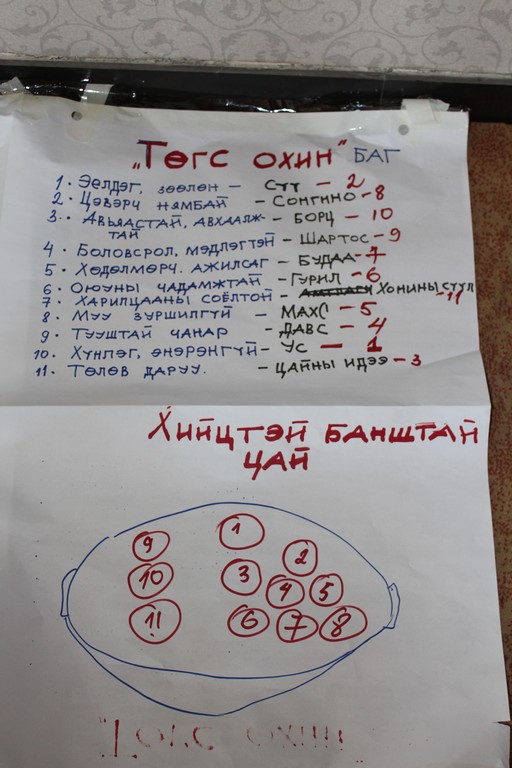 "Төгс охин" баг
1. Эелдэг, зөөлөн – Сүү – 2
2. Цэвэрч нямбай – Сонгино – 8
3. Авьяастай, авхаалж- – Борц – 10
тай
4. Боловсрол, мэдлэгтэй – Шартос – 9
5. Хөдөлмөрч. ажилсаг – Будаа – 7
6. Оюуны чадамжтай – Гурил – 6
7. Харилцааны соёлтой – Хонины сүүл – 11
8. Муу зуршилгүй – Мах – 5
9. Тууштай чанар – Давс – 4
10. Хүнлэг, энэрэнгүй – Ус – 1
11. Төлөв даруу. – Цайны идээ – 3
Хийцтэй банштай
цай
1
9 2
10 3 4 5
11 6 7 8
"Төгс охин"